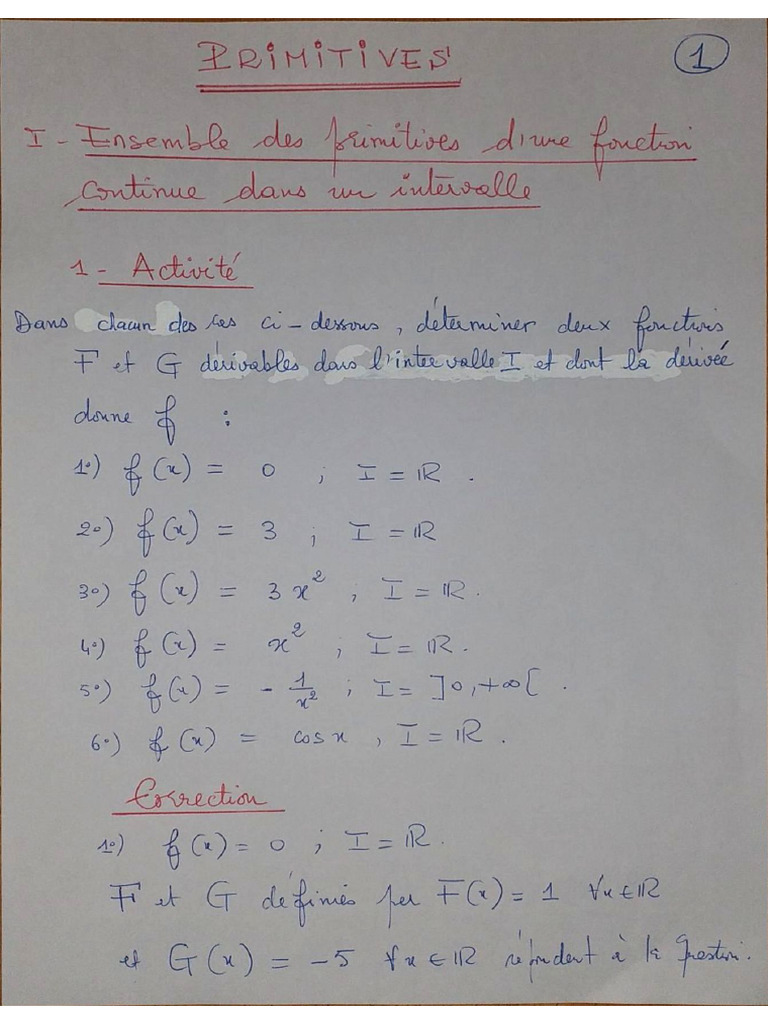 PRIMITIVES
1
I - Ensemble des primitives d'une fonction
continue dans un intervalle
1 - Activité
Dans chacun des cas ci-dessous, déterminer deux fonctions
F et G dérivables dans l'intervalle I et dont la dérivée
donne f :
1°) f(x) = 0 ; I = ℝ.
2°) f(x) = 3 ; I = ℝ
3°) f(x) = 3x² ; I = ℝ.
4°) f(x) = x² ; I = ℝ.
5°) f(x) = - 1/x² ; I = ]0, +∞[ .
6°) f(x) = cos x , I = ℝ.
Correction
1°) f(x) = 0 ; I = ℝ.
F et G définies par F(x) = 1 ∀x ∈ ℝ
et G(x) = -5 ∀x ∈ ℝ répondent à la question.